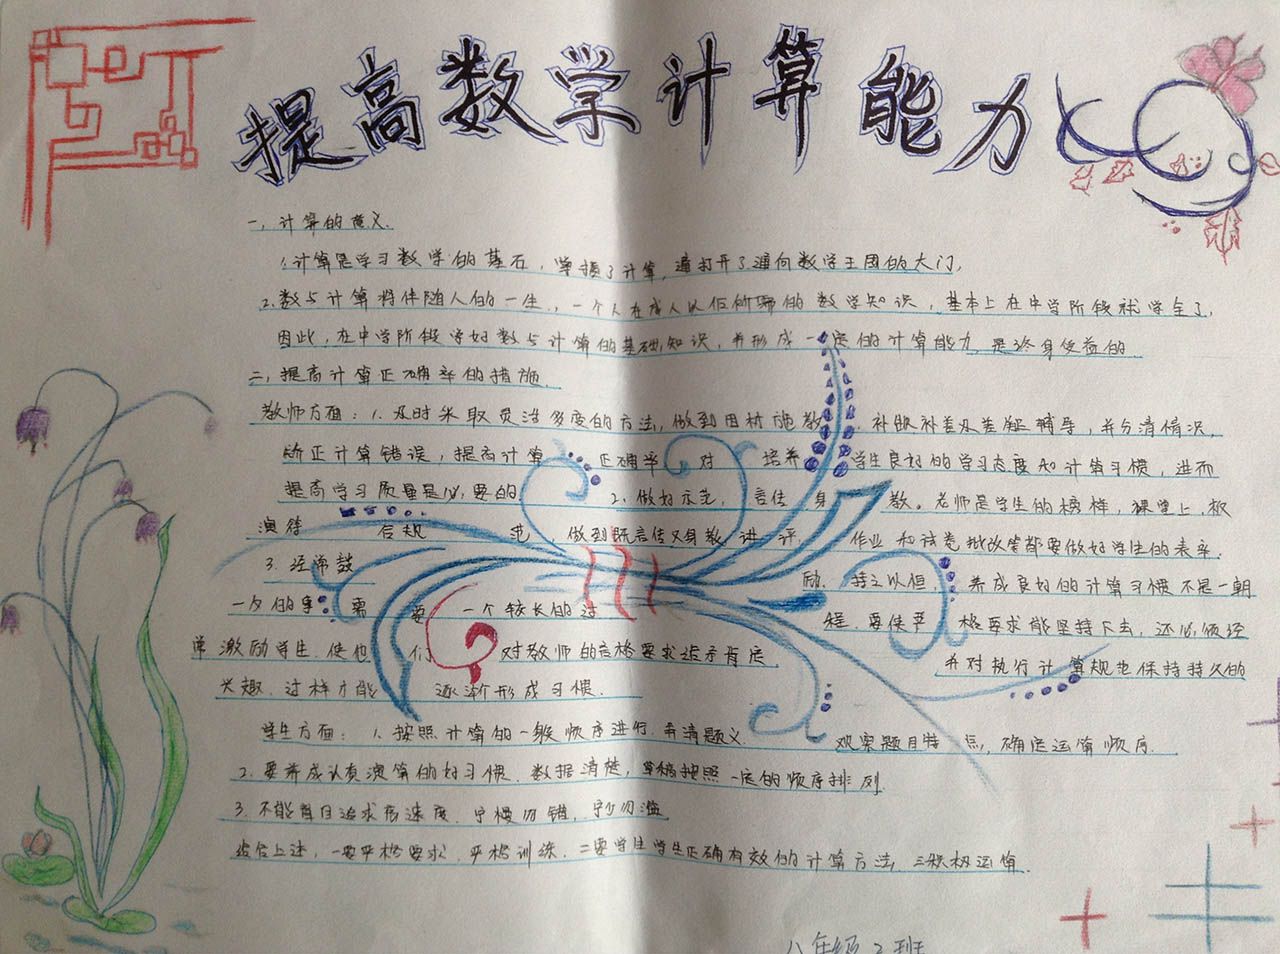 提高数学计算能力
一,计算的意义.
1.计算是学习数学的基石,掌握了计算,遍打开了通向数学王国的大门,
2.数与计算将伴随人的一生,一个人在成人以后所需的数学知识,基本上在中学阶段就学全了,
因此,在中学阶段学好数与计算的基础知识,并形成一定的计算能力 是终身受益的
二,提高计算正确率的措施.
教师方面:1.及时采取灵活多变的方法,做到因材施教 补 补差 辅导,并分清情况,
矫正计算错误,提高计算 正确率 对 培养 学生良好的学习态度和计算习惯,进而
提高学习质量是必要的 2.做好示范,言传身教。老师是学生的榜样,课堂上,板
演 规范,做到既言传又身教 讲评 作业和试卷批改等都要做好学生的表率.
3.经常鼓励.持之以恒.养成良好的计算习惯不是一朝
一夕的事 需要 一个较长的过程.要使严格要求能坚持下去,还必须经
常激励学生.使他们 对教师的严格要求 并对执行计算规 保持持久的
兴趣.这样才能 逐渐形成习惯.
学生方面:1.按照计算的一般顺序进行.弄清题义 观察题目特点,确定运算顺序.
2.要养成认真演算的好习惯.数据清楚,草稿按照一定的顺序排列.
3.不能盲目追求高速度.宁慢勿错,宁少勿滥
综合上述,一要严格要求,严格训练.二要学生学生正确有效的计算方法.三积极运算.
八年级2班